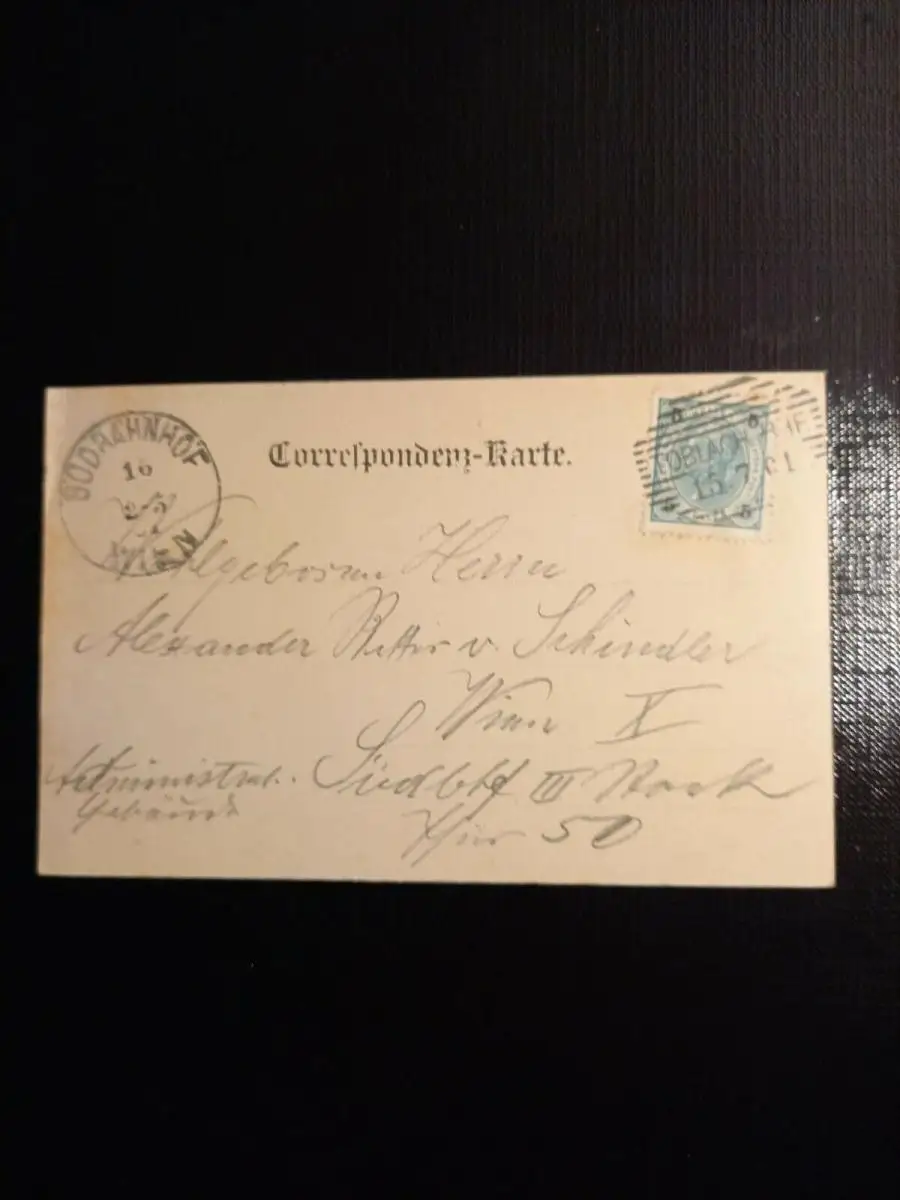 SÜDBAHNHOF
16
WIEN
Correspondenz-Karte.
5 5
TOBLACH
15 7 01
5
Herrn
Alexander Ritter v. Schindler
Wien X
Administrat. Südbhf III Stock
Gebäude
Thür 50